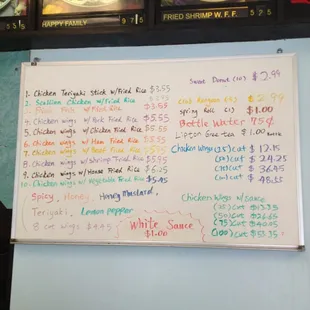 HAPPY FAMILY
FRIED SHRIMP W. F. F.
1. Chicken Teriyaki Stick w/Fried Rice $3.55
2. Scallion Chicken w/Fried Rice
w/Fried Rice
4. Chicken wings w/ Pork Fried Rice $5.55
5. Chicken wings w/ Chicken Fried Rice $5.55
6. Chicken wings w/ Ham Fried Rice $5.55
7. Chicken wings w/ Beef Fried Rice
8. Chicken wings w/ Shrimp Fried Rice
9. Chicken wings w/ House Fried Rice $6.25
10. Chicken wings w/ Vegetable Fried Rice $5.45
Spicy, Honey, Honey Mustard,
Teriyaki, Lemon pepper
8 cut wings $4.45
White Sauce
$1.00
Sweet Donut (10) $2.99
Crab Rangoon $2.99
Spring Roll (1) $1.00
Bottle Water 75¢
Lipton Green tea $1.00
Chicken Wings (25) cut $12.15
(50) cut $24.25
(75) cut $36.45
(100) cut $48.55
Chicken Wings w/ Sauce
(25) cut $13.35
(50) cut $26.65
(75) cut $40.05
(100) cut $53.35